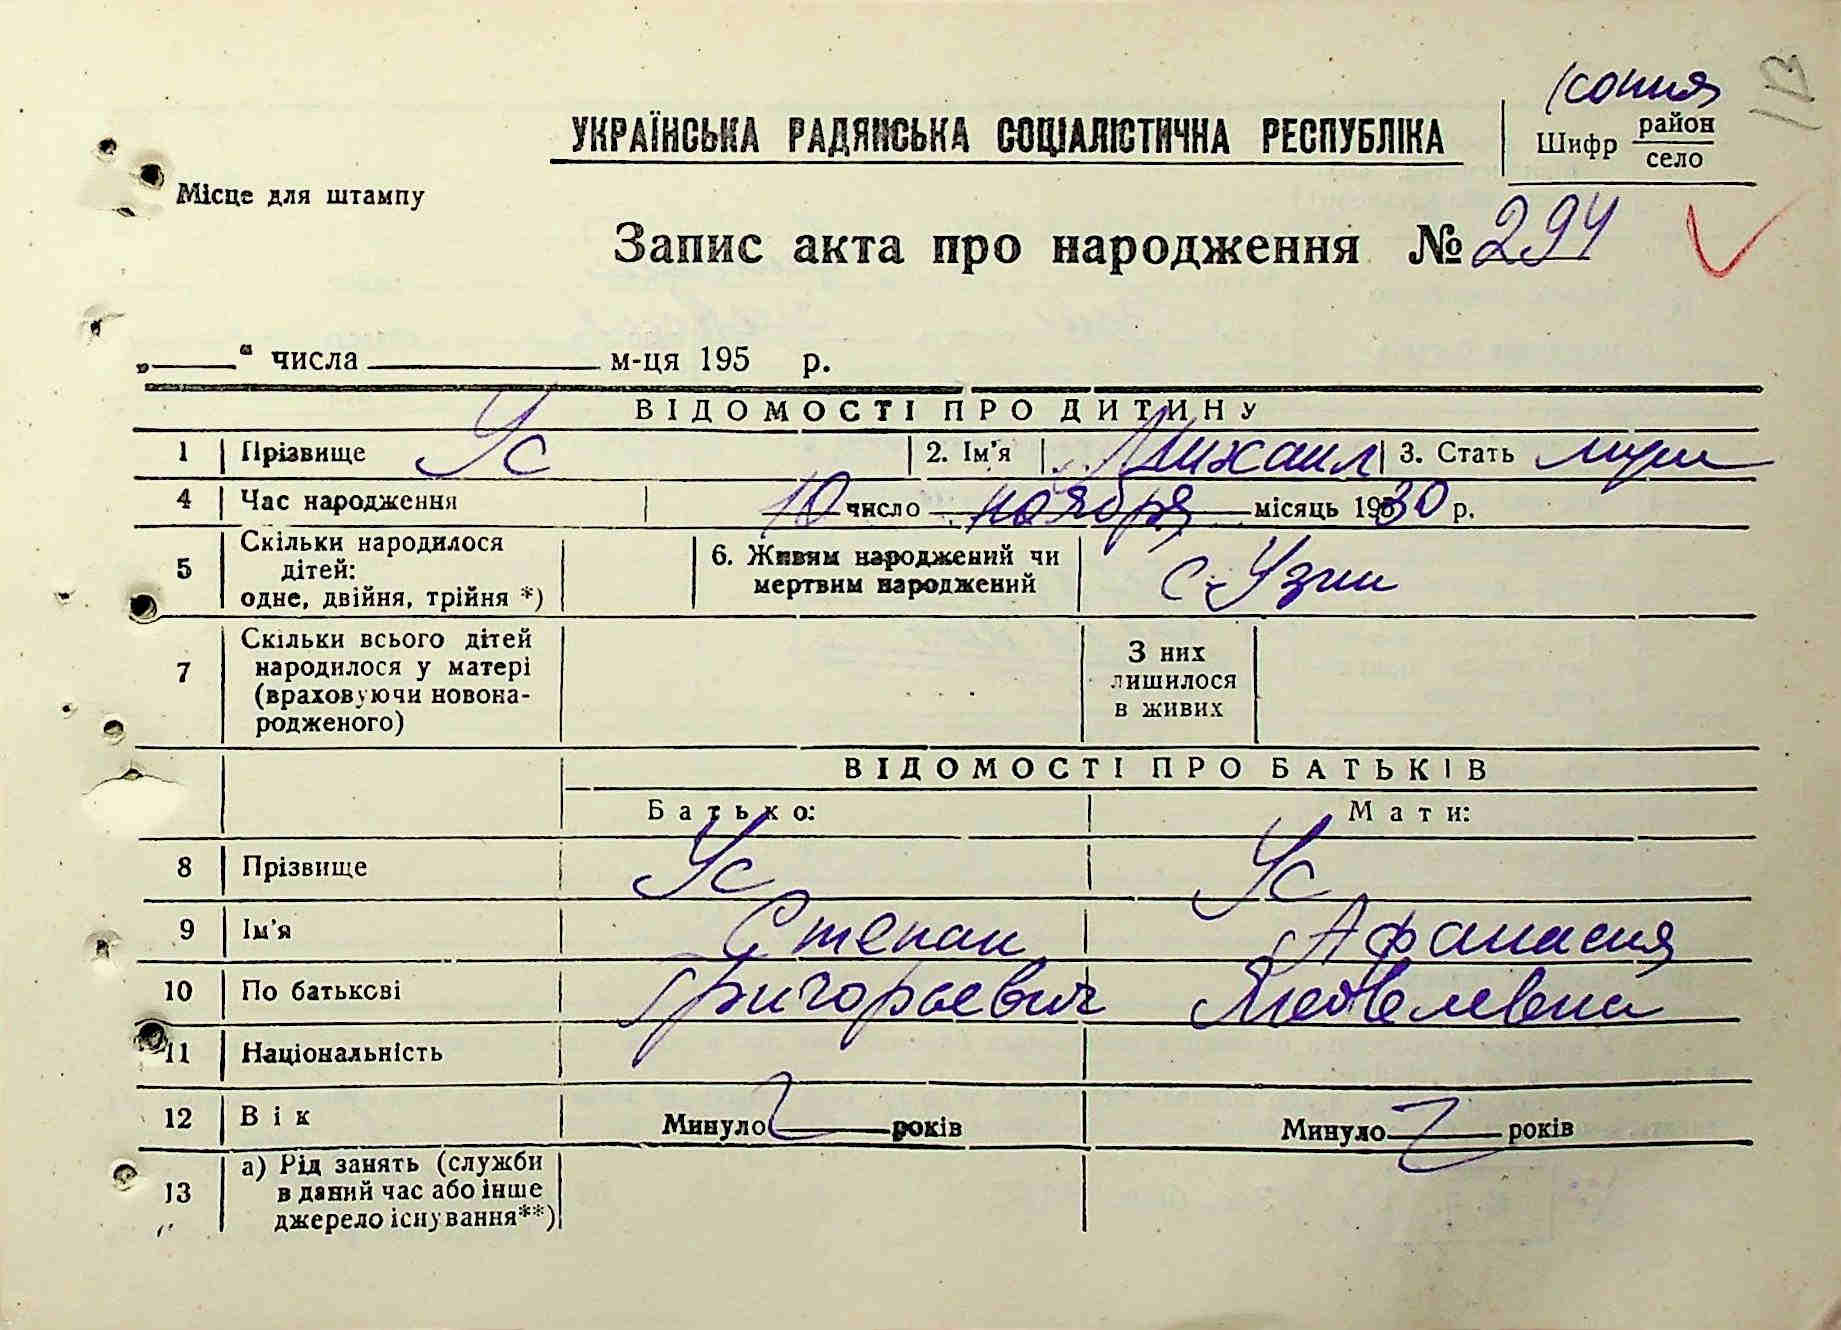 копия
УКРАЇНСЬКА РАДЯНСЬКА СОЦІАЛІСТИЧНА РЕСПУБЛІКА
Шифр район
село
Місце для штампу
Запис акта про народження № 294
„ “ числа м-ця 195 р.
ВІДОМОСТІ ПРО ДИТИНУ
1 Прізвище Ус 2. Ім'я Михаил 3. Стать муж
4 Час народження 10 число ноября місяць 1930 р.
5 Скільки народилося дітей: одне, двійня, трійня *) 6. Живим народжений чи мертвим народжений с. Узин
7 Скільки всього дітей народилося у матері (враховуючи новонародженого) З них лишилося в живих
ВІДОМОСТІ ПРО БАТЬКІВ
Батько: Мати:
8 Прізвище Ус Ус
9 Ім'я Степан Афанасия
10 По батькові Григорьевич Яковлевна
11 Національність
12 Вік Минуло років Минуло років
13 а) Рід занять (служби в даний час або інше джерело існування**)